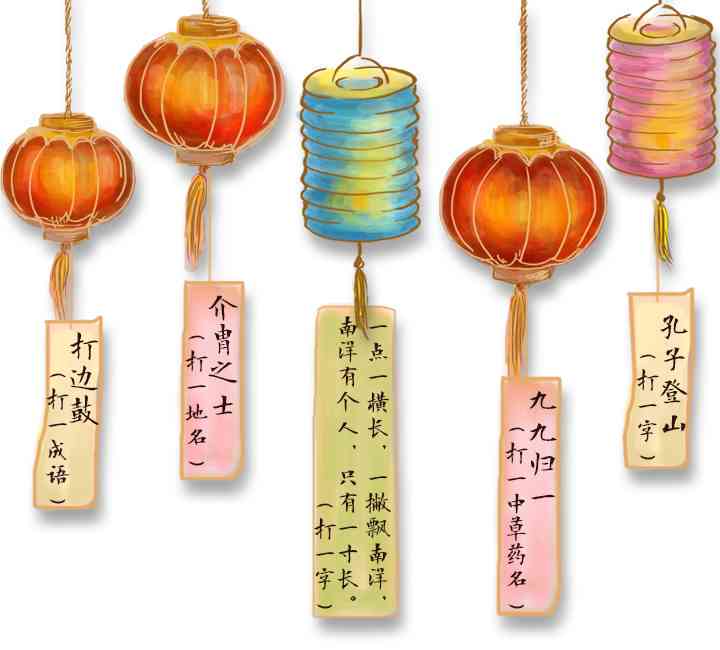 打边鼓
（打一成语）
介胄之士
（打一地名）
一点一横长，一撇飘南洋，
南洋有个人，只有一寸长。
（打一字）
九九归一
（打一中草药名）
孔子登山
（打一字）